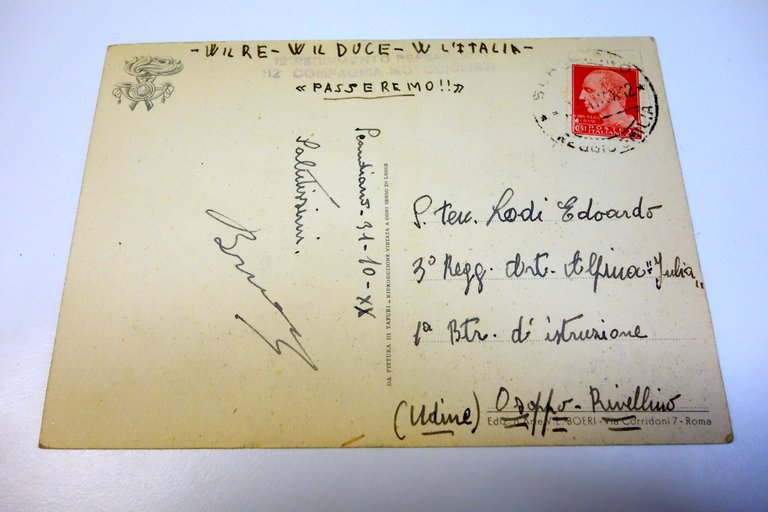 - W IL RE - W IL DUCE - W L'ITALIA -
12° REGGIMENTO BERSAGLIERI
112ª COMPAGNIA MOTOCICLISTI
«PASSEREMO!!»
Scandiano - 31-10-XX
Salutissimi.
DA PITTURA DI TAFURI - RIPRODUZIONE VIETATA A OGNI SENSO DI LEGGE
POSTE
ITALIANE
REGGIO EMILIA
S. ten. Lodi Edoardo
3° Regg. Art. Alpina "Julia"
1ª Btr. d'istruzione
(Udine) Osoppo - Rivellino
BOERI - Via Corridoni 7 - Roma